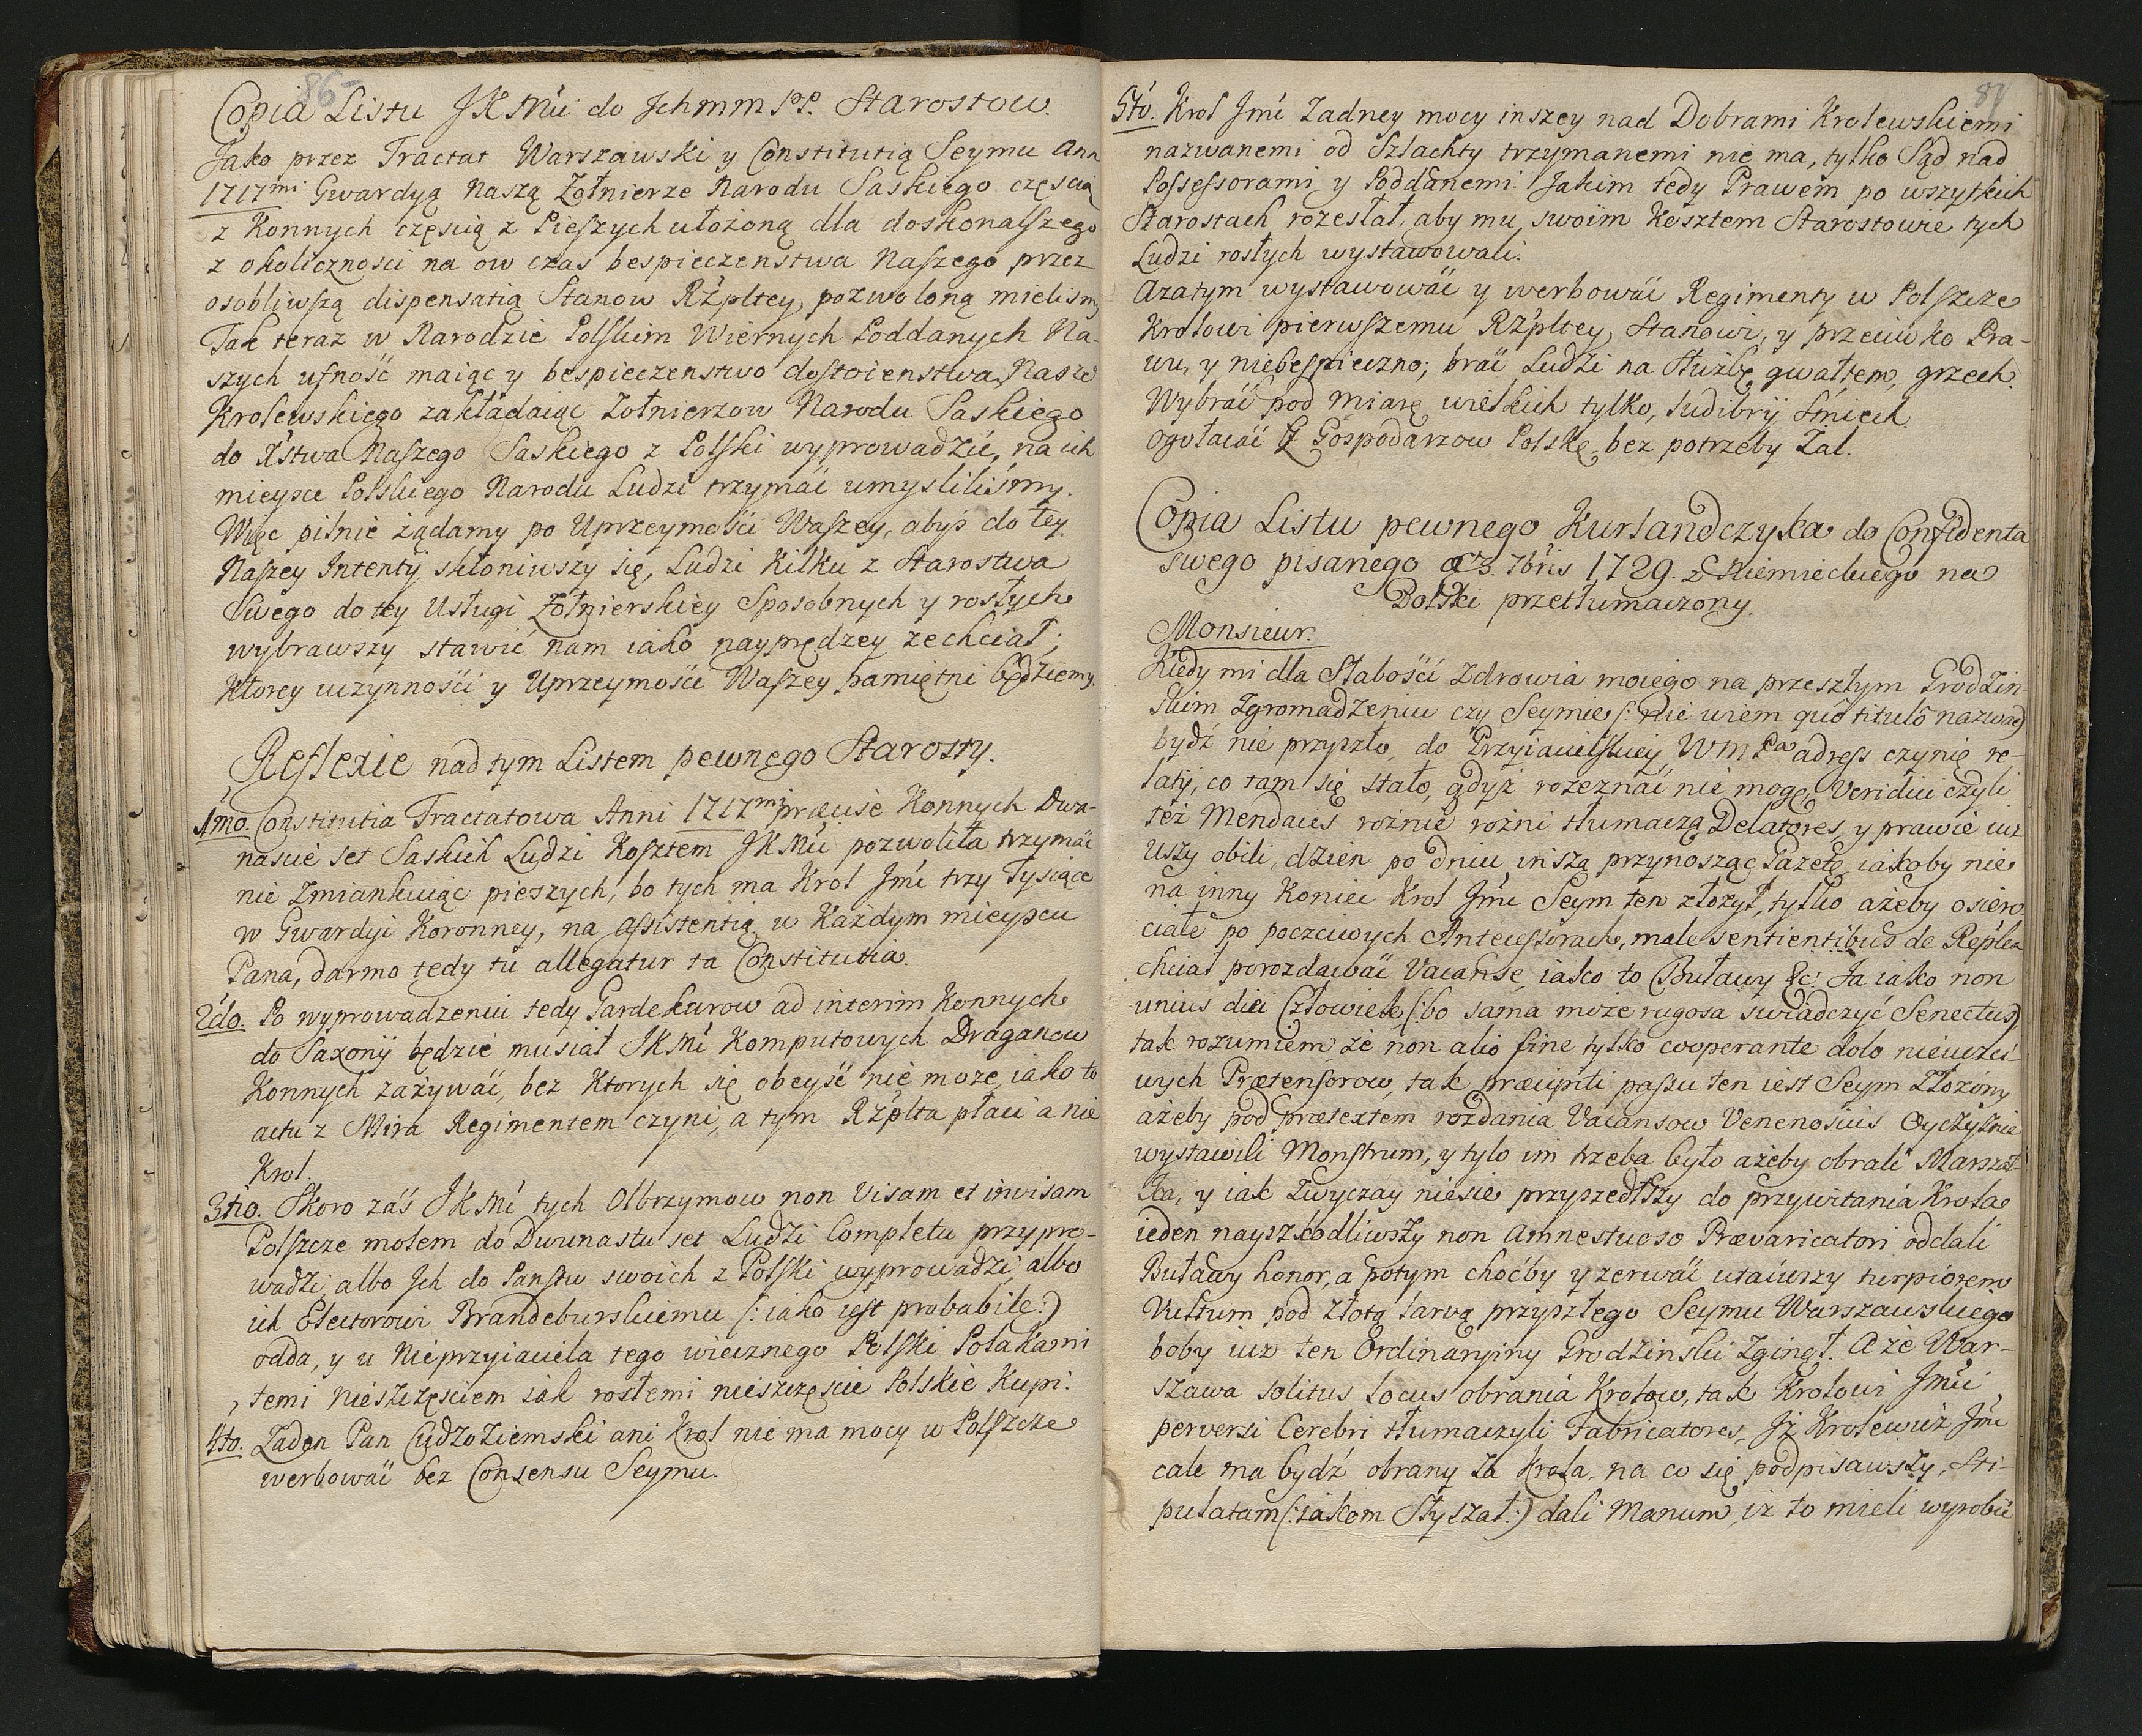 86
Copia Listu JKMći do Jchmm PP. Starostow.
Jako przez Tractat Warszawski y Constitutią Seymu Ann
1717mi Gwardyą Naszą Zołnierze Narodu Saskiego częscią
z Konnych częscią z Pieszych ułożoną dla doskonalszego
z okolicznosci na ow czas bespieczenstwa Naszego przez
osobliwszą dispensatią Stanow Rzpltey pozwoloną mielismy
Tak teraz w Narodzie Polskim Wiernych Poddanych Na-
szych ufność maiąc y bespieczenstwo dostoienstwa Nasze
Krolewskiego zakładaiąc Zołnierzow Narodu Saskiego
do Pstwa Naszego Saskiego z Polski wyprowadzić, na ich
mieysce Polskiego Narodu Ludzi trzymać umyslilismy.
Więc pilnie żądamy po Uprzeymości Waszey, abyś do tey
Naszey Intenty skłoniwszy się, Ludzi Kilku z Starostwa
Swego do tey Usługi Zołnierskiey Sposobnych y rosłych
wybrawszy stawić nam iako nayprędzey zechciał;
Ktorey uczynności y Uprzeymości Waszey pamiętni będziemy.
Reflexie nad tym Listem pewnego Starosty.
1mo. Constitutia Tractatowa Anni 1717mi præcise Konnych Dwa-
nascie set Saskich Ludzi Kosztem JKMći pozwoliła trzymać
nie Zmiankuiąc pieszych, bo tych ma Krol Jmć trzy Tysiące
w Gwardyi Koronney, na assistentią w Każdym mieyscu
Pana, darmo tedy tu allegatur ta Constitutia.
2do. Po wyprowadzeniu tedy Gardekurow ad interim Konnych
do Saxonij będzie musiał JKMć Komputowych Draganow
Konnych zażywać, bez Ktorych się obeyść nie może, iako to
actu z Mira Regimentem czyni, a tym Rzplta płaci a nie
Krol.
3tio. Skoro zaś JKMć tych Olbrzymow non visam et invisam
Polszcze molem do Dwunastu set Ludzi Completu przypro-
wadzi, albo Jch do Panstw swoich z Polski wyprowadzi, albo
ich Electorowi Brandeburskiemu (: iako iest probabile :)
odda, y u Nieprzyiaciela tego wiecznego Polski Polakami
temi nieszczęsciem iak rosłemi nieszczęscie Polskie Kupi.
4to. Zaden Pan Cudzoziemski ani Krol nie ma mocy w Polszcze
werbować bez Consensu Seymu.
87
5to. Krol Jmć Zadney mocy inszey nad Dobrami Krolewskiemi
nazwanemi od Szlachty trzymanemi nie ma, tylko Sąd nad
Possessorami y Poddanemi. Jakim tedy Prawem po wszytkich
Starostach rozesłał, aby mu swoim Kosztem Starostowie tych
Ludzi rosłych wystawowali.
Azatym wystawować y werbować Regimenty w Polszcze
Krolowi pierwszemu Rzpltey Stanowi, y przeciwko Pra-
wu, y niebespieczno; brać Ludzi na Służbę gwałtem, grzech.
Wybrać pod miarę wielkich tylko, ludibrij Smiech
ogołacać z Gospodarzow Polskę bez potrzeby Zal.
Copia Listu pewnego Kurlandczyka do Confidenta
swego pisanego 3. 7bris 1729. z Niemieckiego na
Polski przetłumaczony.
Monsieur.
Kiedy mi dla Słabości Zdrowia moiego na przeszłym Grodzin-
skim Zgromadzeniu czy Seymie (: Nie wiem quo titulo nazwać)
bydź nie przyszło, do Przyiacielskiey WmPa adress czynię re-
latij, co tam się stało, gdyż rozeznać nie mogę, Veridici czyli
też Mendaces rożnie rożni tłumaczą Delatores, y prawie iuż
uszy obili, dzień po dniu inszą przynosząc Gazetę, iakoby nie
na inny Koniec Krol Jmć Seym ten złożył, tylko ażeby osiero
ciałe po poczciwych Antecessorach, male sentientibus de Rep̃lca
chciał porozdawać Vacanse, iako to Buławy &c: Ja iako non
unius diei Człowiek, (: bo sama może rugosa swiadczyć Senectus)
tak rozumiem że non alio fine tylko cooperante dolo nieuczci-
wych Prætensorow, tak præcipiti passu ten iest Seym Złożony
ażeby pod prætextem rozdania Vacansow Venenosius Oyczyznie
wystawili Monstrum, y tylo im trzeba było ażeby obrali Marszał-
ka, y iak Zwyczay niesie przyszedłszy do przywitania Krola
ieden nayszkodliwszy non Amnestuoso Prævaricatori oddali
Buławy honor, a potym choćby y zerwać utaiwszy turpiorem
Vultum pod złotą larwą przyszłego Seymu Warszawskiego
boby iuż ten Ordinaryiny Grodzinski Zginął. A że War-
szawa solitus locus obrania Krolow, tak Krolowi Jmći
perversi Cerebri tłumaczyli Fabricatores, Jż Krolewic Jmć
cale ma bydź obrany za Krola, na co się podpisawszy, Sti-
pulatam (: iakom Słyszał :) dali Manum, iż to mieli wyrobić